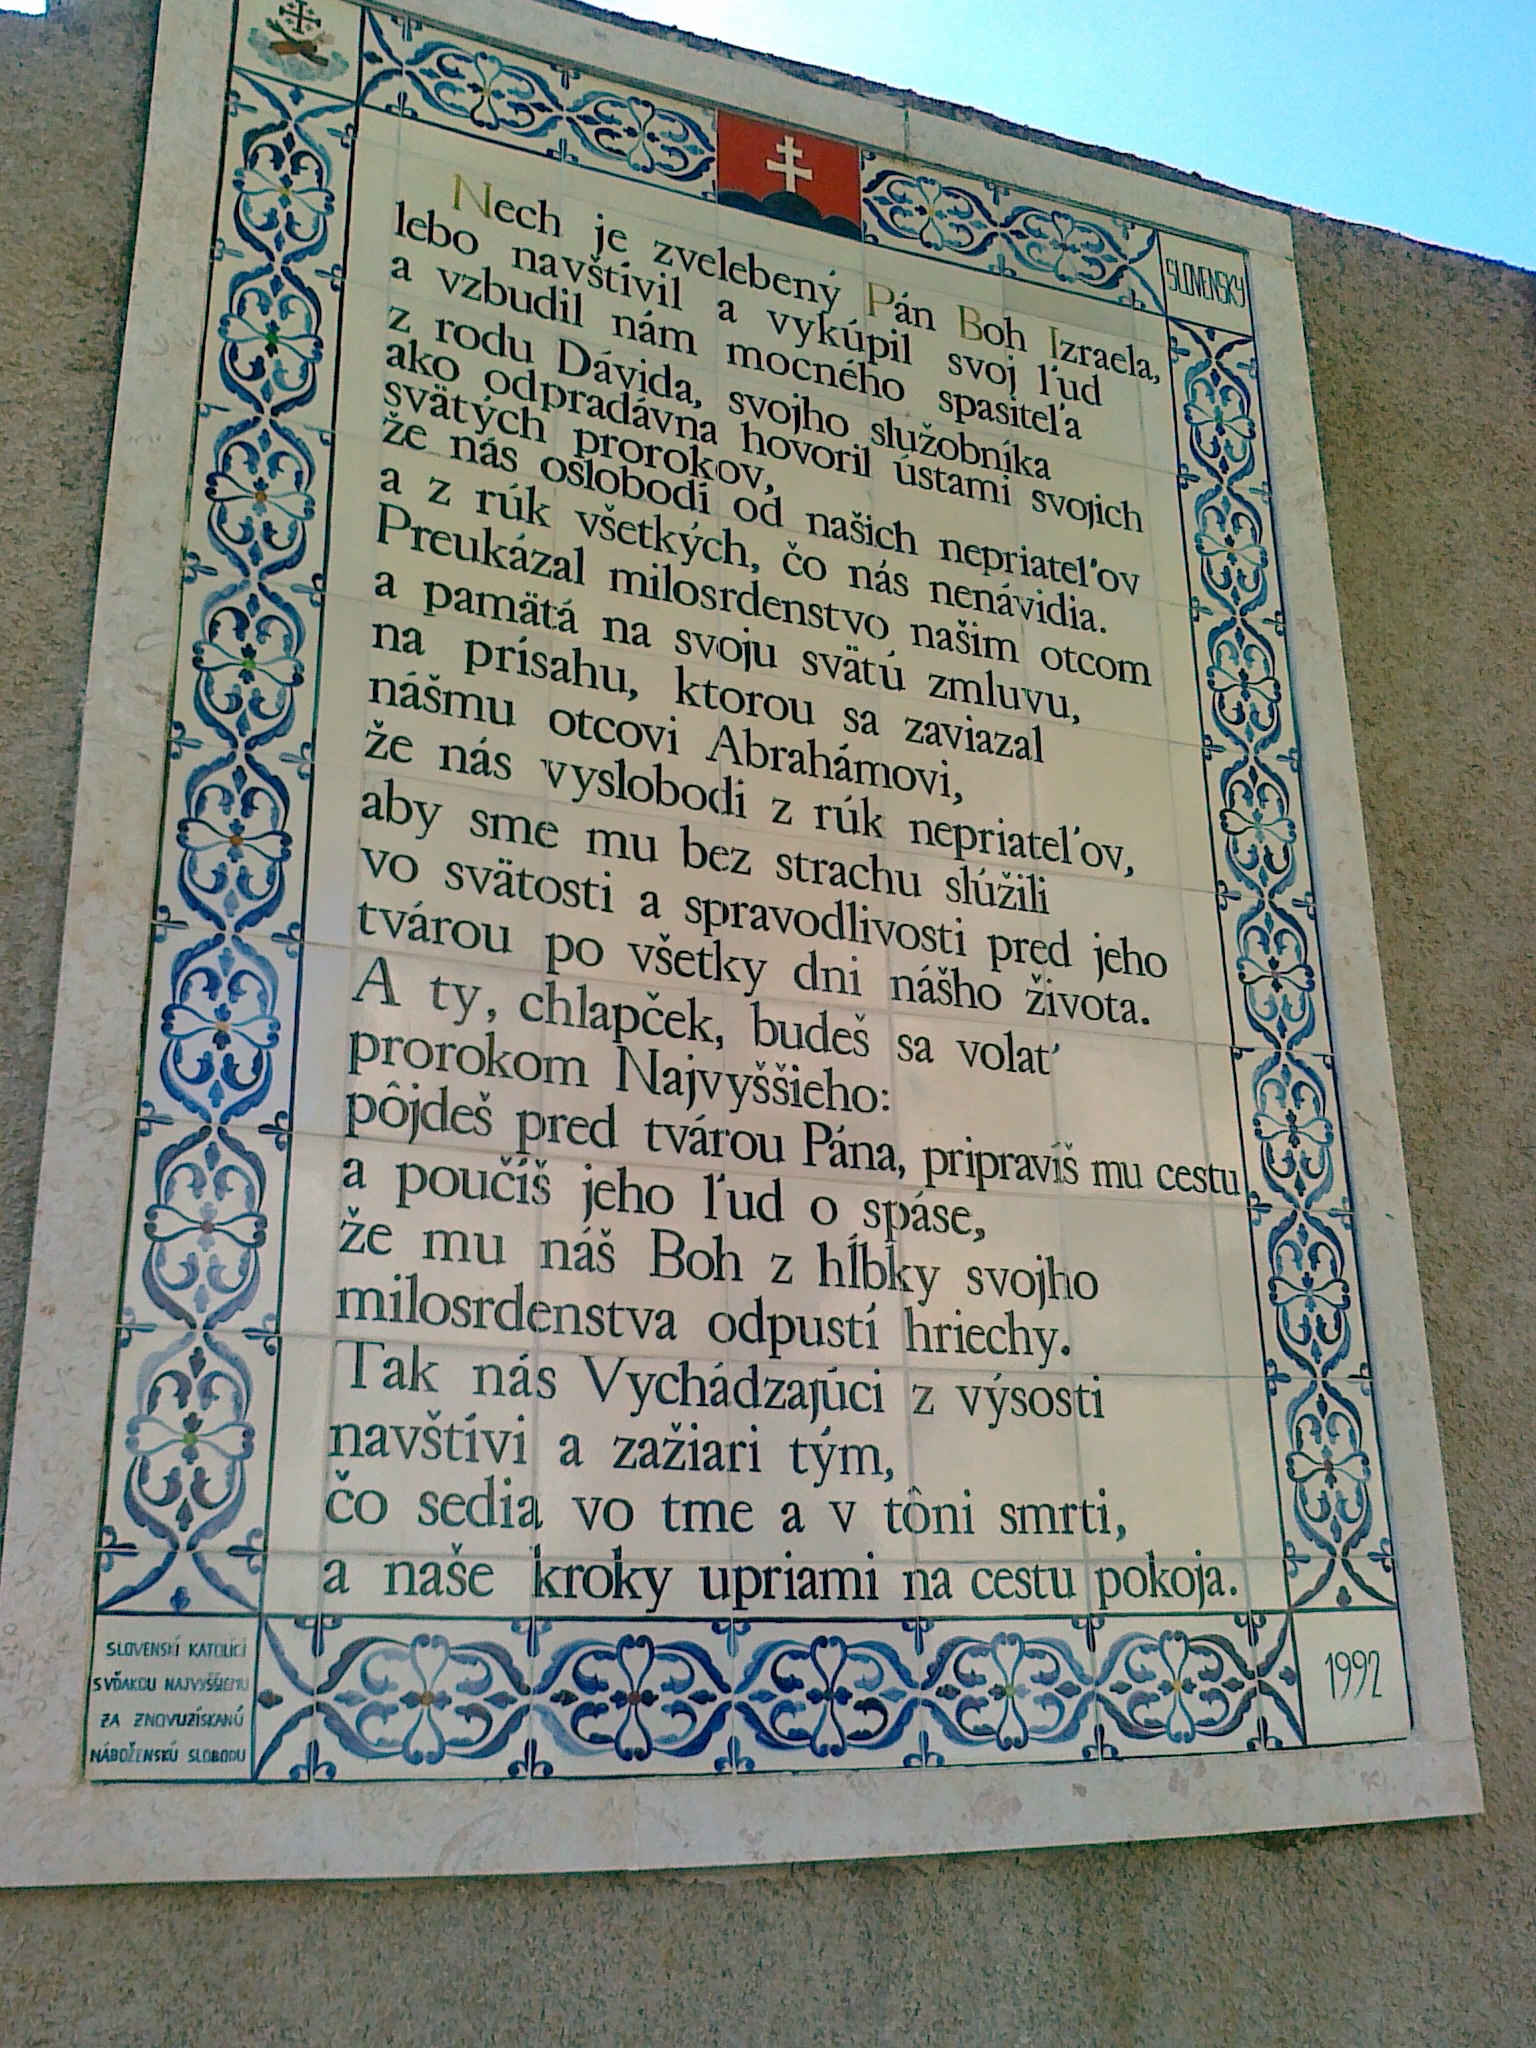 SLOVENSKY
Nech je zvelebený Pán Boh Izraela,
lebo navštívil a vykúpil svoj ľud
a vzbudil nám mocného spasiteľa
z rodu Dávida, svojho služobníka
ako odpradávna hovoril ústami svojich
svätých prorokov,
že nás oslobodí od našich nepriateľov
a z rúk všetkých, čo nás nenávidia.
Preukázal milosrdenstvo našim otcom
a pamätá na svoju svätú zmluvu,
na prísahu, ktorou sa zaviazal
nášmu otcovi Abrahámovi,
že nás vyslobodi z rúk nepriateľov,
aby sme mu bez strachu slúžili
vo svätosti a spravodlivosti pred jeho
tvárou po všetky dni nášho života.
A ty, chlapček, budeš sa volať
prorokom Najvyššieho:
pôjdeš pred tvárou Pána, pripravíš mu cestu
a poučíš jeho ľud o spáse,
že mu náš Boh z hĺbky svojho
milosrdenstva odpustí hriechy.
Tak nás Vychádzajúci z výsosti
navštívi a zažiari tým,
čo sedia vo tme a v tôni smrti,
a naše kroky upriami na cestu pokoja.
SLOVENSKÍ KATOLÍCI
S VĎAKOU NAJVYŠŠIEMU
ZA ZNOVUZÍSKANÚ
NÁBOŽENSKÚ SLOBODU
1992